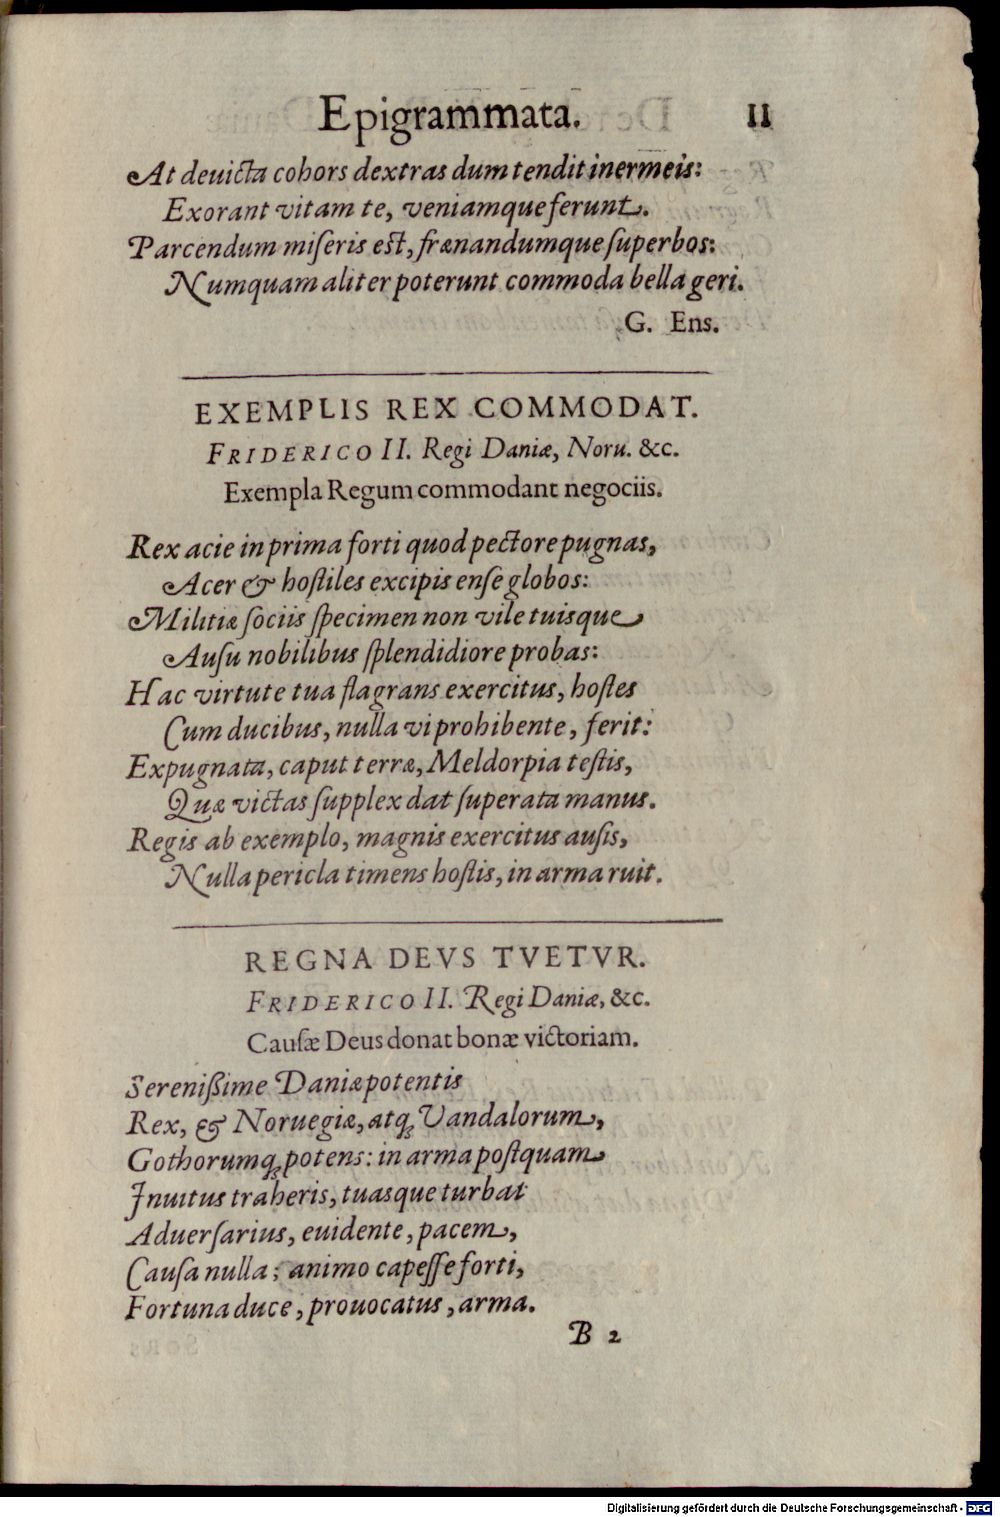 Epigrammata. 11
At deuicta cohors dextras dum tendit inermeis:
Exorant vitam te, veniamque ferunt.
Parcendum miſeris est, frænandumque ſuperbos:
Numquam aliter poterunt commoda bella geri.
G. Ens.
EXEMPLIS REX COMMODAT.
FRIDERICO II. Regi Daniæ, Noru. &c.
Exempla Regum commodant negociis.
Rex acie in prima forti quod pectore pugnas,
Acer & hoſtiles excipis enſe globos:
Militiæ ſociis ſpecimen non vile tuisque
Auſu nobilibus ſplendidiore probas:
Hac virtute tua flagrans exercitus, hoſtes
Cum ducibus, nulla vi prohibente, ferit:
Expugnata, caput terræ, Meldorpia teſtis,
Quæ victas ſupplex dat ſuperata manus.
Regis ab exemplo, magnis exercitus auſis,
Nulla pericla timens hoſtis, in arma ruit.
REGNA DEVS TVETVR.
FRIDERICO II. Regi Daniæ, &c.
Cauſæ Deus donat bonæ victoriam.
Sereniſſime Daniæ potentis
Rex, & Noruegiæ, atq; Vandalorum,
Gothorumq; potens: in arma poſtquam
Inuitus traheris, tuasque turbat
Aduerſarius, euidente, pacem,
Cauſa nulla; animo capeſſe forti,
Fortuna duce, prouocatus, arma.
B 2
Digitalisierung gefördert durch die Deutsche Forschungsgemeinschaft - DFG